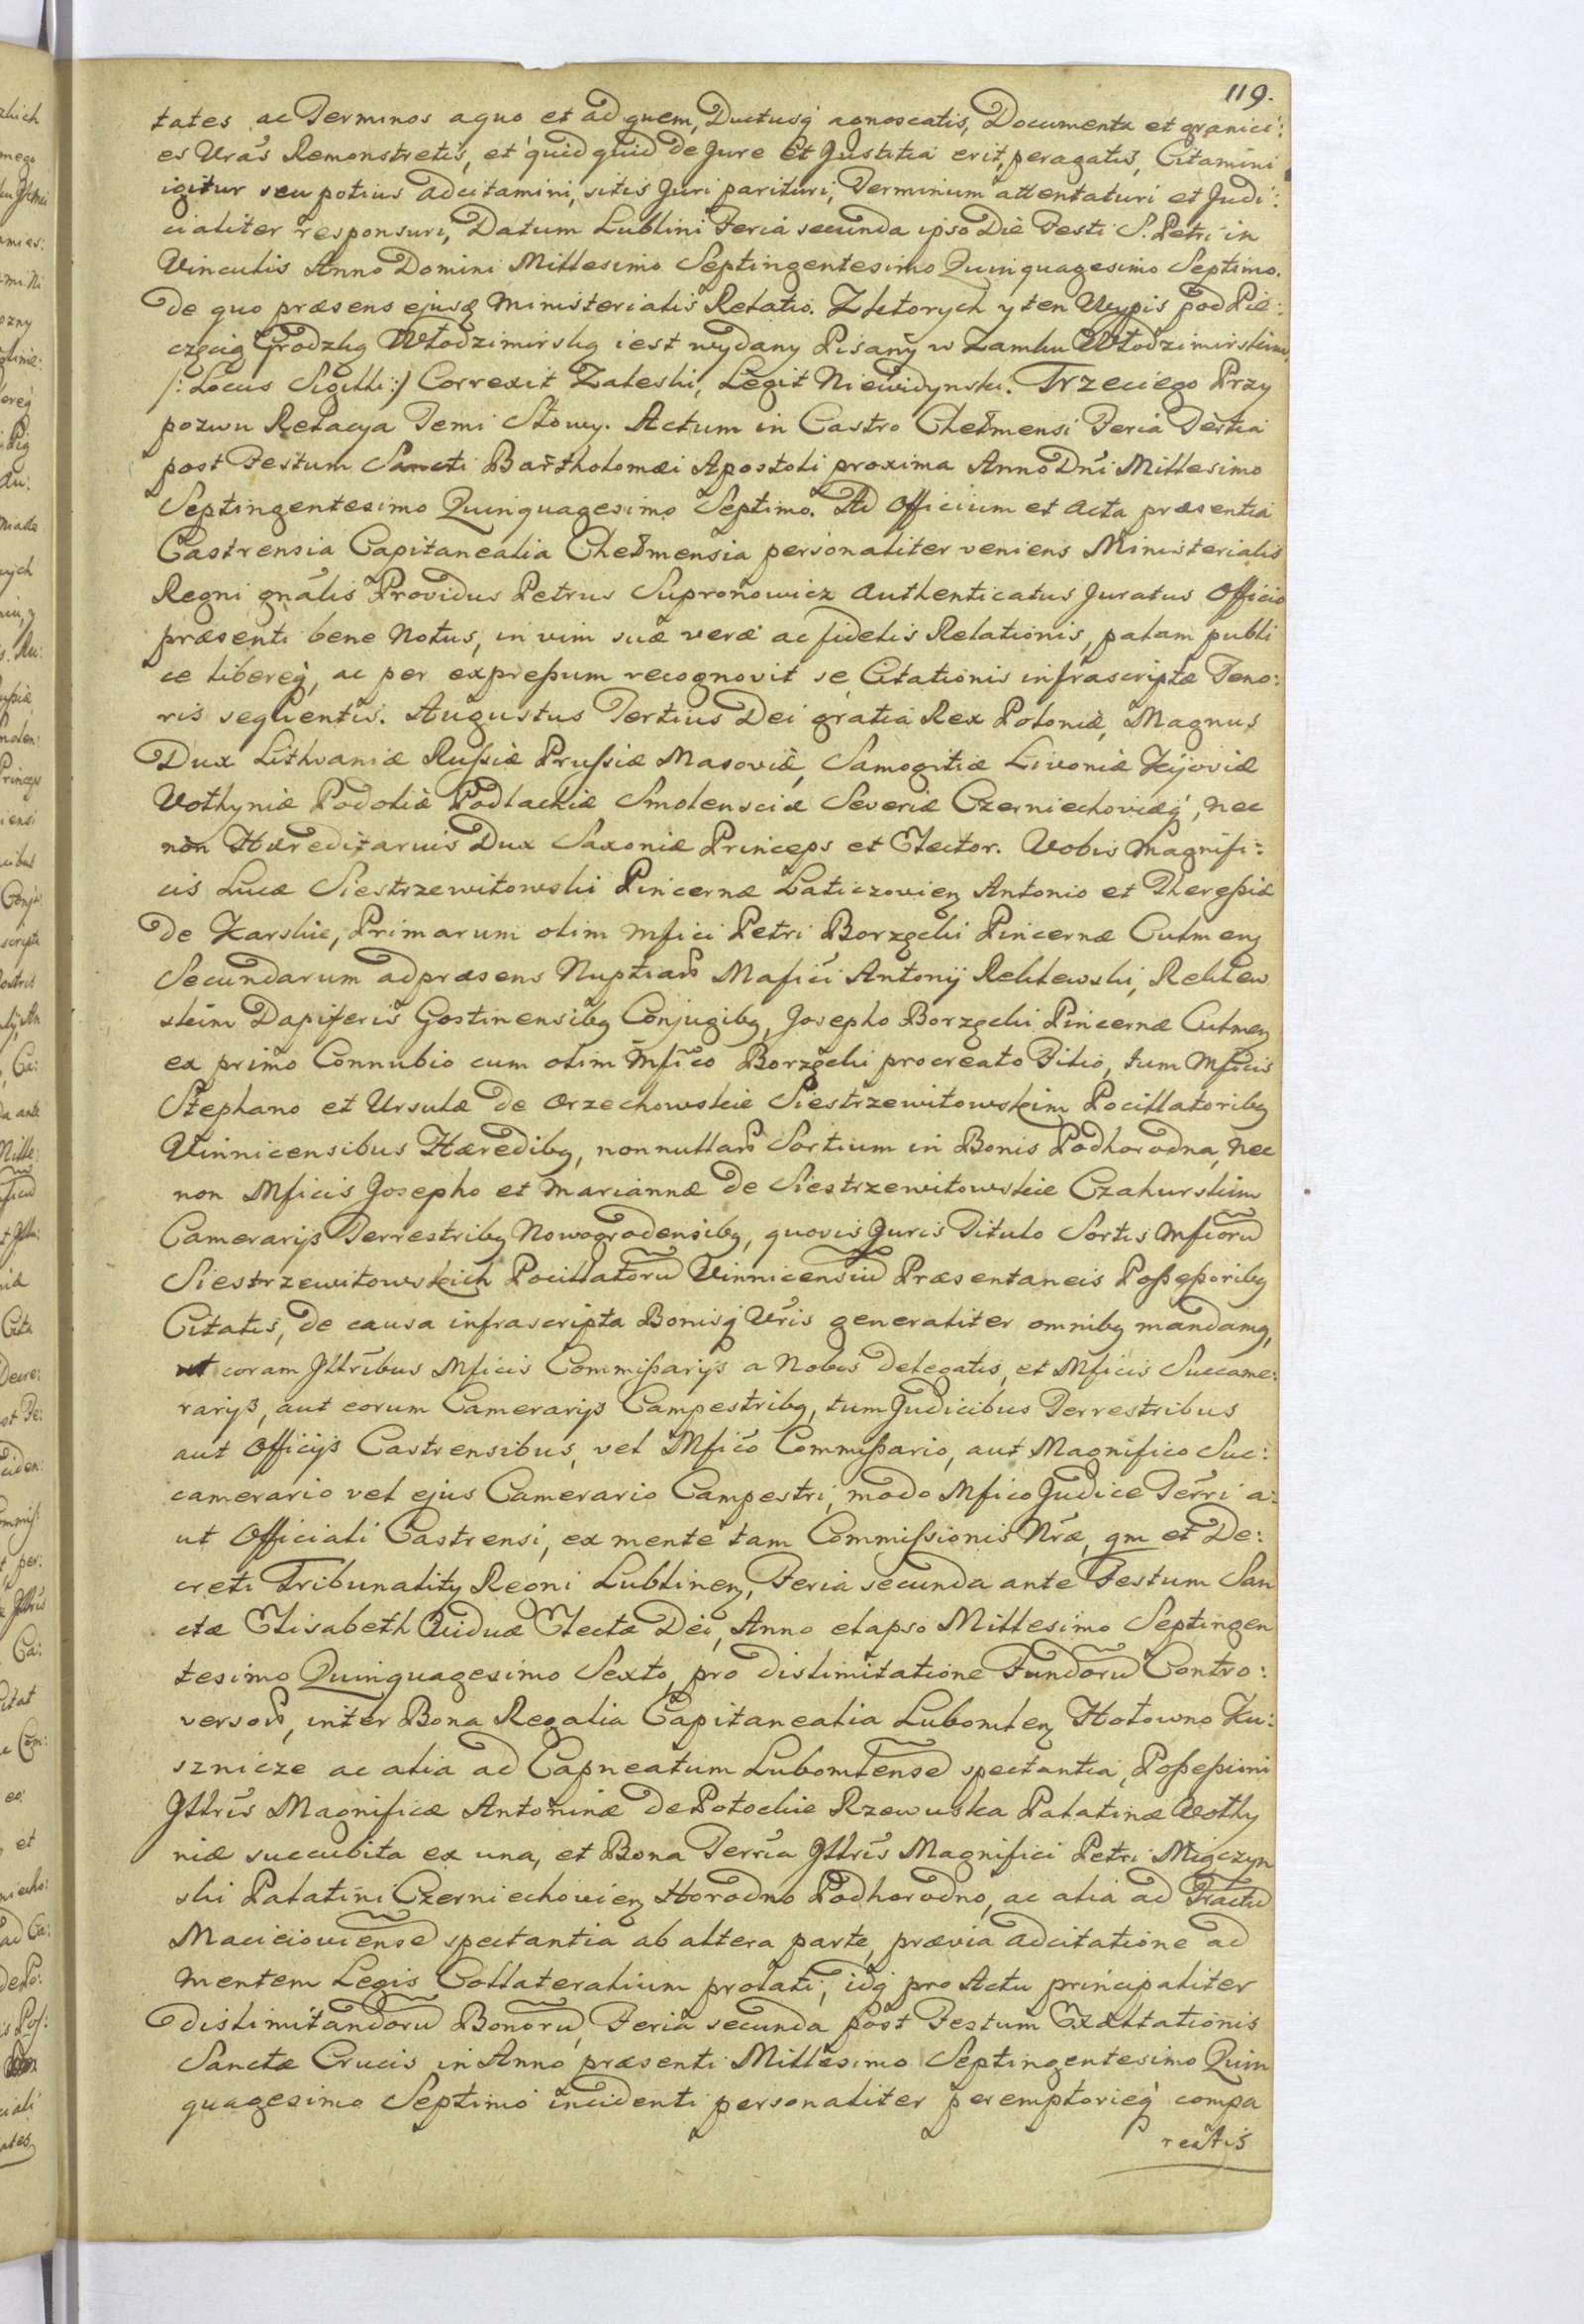 119.
tates ac Terminos a quo et ad quem, Ductusq́ agnoscatis, Documenta et granici:
es Vrãs Remonstretis, et quid quid de Jure et Justitia erit, peragatis, Citamini
igitur seu potius adcitamini, sitis Juri parituri, Terminum attentaturi et Judi:
cialiter responsuri, Datum Lublini Feria secunda ipso Die Festi S. Petri in
Vinculis Anno Domini Millesimo Septingentesimo Quinquagesimo Septimo.
De quo præsens ejusq́ Ministerialis Relatio. Zktorych y ten Wypis pod Pie:
częcią Grodzką Włodzimirską iest wydany Pisany w Zamku Włodzimirskim
/: Locus Sigilli :/ Correxit Zaleski, Legit Niewidynski. Trzeciego Przy
pozwu Relacya Temi Słowy. Actum in Castro Chełmensi Feria Tertia
post Festum Sancti Bartholomæi Apostoli proxima Anno Dñi Millesimo
Septingentesimo Quinquagesimo Septimo. Ad Officium et Acta præsentia
Castrensia Capitanealia Chełmensia personaliter veniens Ministerialis
Regni gnãlis Providus Petrus Supronowicz Authenticatus Juratus Officio
præsenti bene Notus, in vim suæ veræ ac fidelis Relationis, palam publi
ce libereq́, ac per expreßum recognovit se, Citationis infrascriptæ Teno:
ris sequentis. Augustus Tertius Dei gratia Rex Poloniæ, Magnus
Dux Lithvaniæ Rußiæ Prußiæ Masoviæ, Samogitiæ Livoniæ Kijoviæ
Volhyniæ Podoliæ Podlachiæ Smolensciæ Severiæ Czerniechoviæq́, nec
non Hæreditarius Dux Saxoniæ Princeps et Elector. Vobis Magnifi:
cis Lucæ Siestrzewitowski Pincernæ Laticzovien Antonio et Thereßiæ
de Karskie, Primarum olim Mfici Petri Borzęcki Pincernæ Culmen
Secundarum adpræsens Nuptiarũ Mafici Antonij Reklewski, Reklew
skim Dapiferis Gostinensibq Conjugibq, Josepho Borzęcki Pincernæ Culmen
ex primo Connubio cum olim Mfico Borzęcki procreato Filio, tum Mficis
Stephano et Ursulæ de Orzechowskie Siestrzewitowskim Pocillatoribq
Vinnicensibus Hæredibq, nonnullarũ Sortium in Bonis Podhorodna, nec
non Mficis Josepho et Mariannæ de Siestrzewitowskie Czahurskim
Camerarijs Terrestribq Nowogrodensibq, quovis Juris Titulo Sortis Mficorũ
Siestrzewitowskich Pocillatorũ Vinnicensiũ Præsentaneis Poßeßoribq
Citatis, de causa infrascripta Bonisq́ Vris generaliter omnibq mandamq,
ut coram Jllribus Mficis Commißarijs a Nobis Delegatis, et Mficis Succame:
rarijs, aut eorum Camerarijs Campestribq, tum Judicibus Terrestribus
aut Officijs Castrensibus, vel Mfico Commißario, aut Magnifico Suc:
camerario vel ejus Camerario Campestri, modo Mfico Judice Terri a:
ut Officiali Castrensi, ex mente tam Commißionis Nræ, qm et De:
creti Tribunalitij Regni Lublinen, Feria secunda ante Festum San
ctæ Elisabeth Viduæ Electæ Dei, Anno elapso Millesimo Septingen
tesimo Quinquagesimo Sexto, pro dislimitatione Fundorũ Contro:
versorũ, inter Bona Regalia Capitanealia Lubomlen Hołowno Ku:
sznicze ac alia ad Capneatum Lubomlense spectantia, Poßeßioni
Jllris Magnificæ Antoninæ de Potockie Rzewuska Palatinæ Volhy
niæ succubita ex una, et Bona Terria Jllris Magnifici Petri Miączyn
ski Palatini Czerniechovien Horodno Podhorodno, ac alia ad Tractũ
Macicioviense spectantia ab altera parte, prævia adcitatione ad
mentem Legis Collateralium prolati, idq́ pro Actu principaliter
dislimitandorũ Bonorũ, Feria secunda post Festum Exaltationis
Sanctæ Crucis in Anno præsenti Millesimo Septingentesimo Quin
quagesimo Septimo incidenti personaliter peremptorieq́ compa
reatis